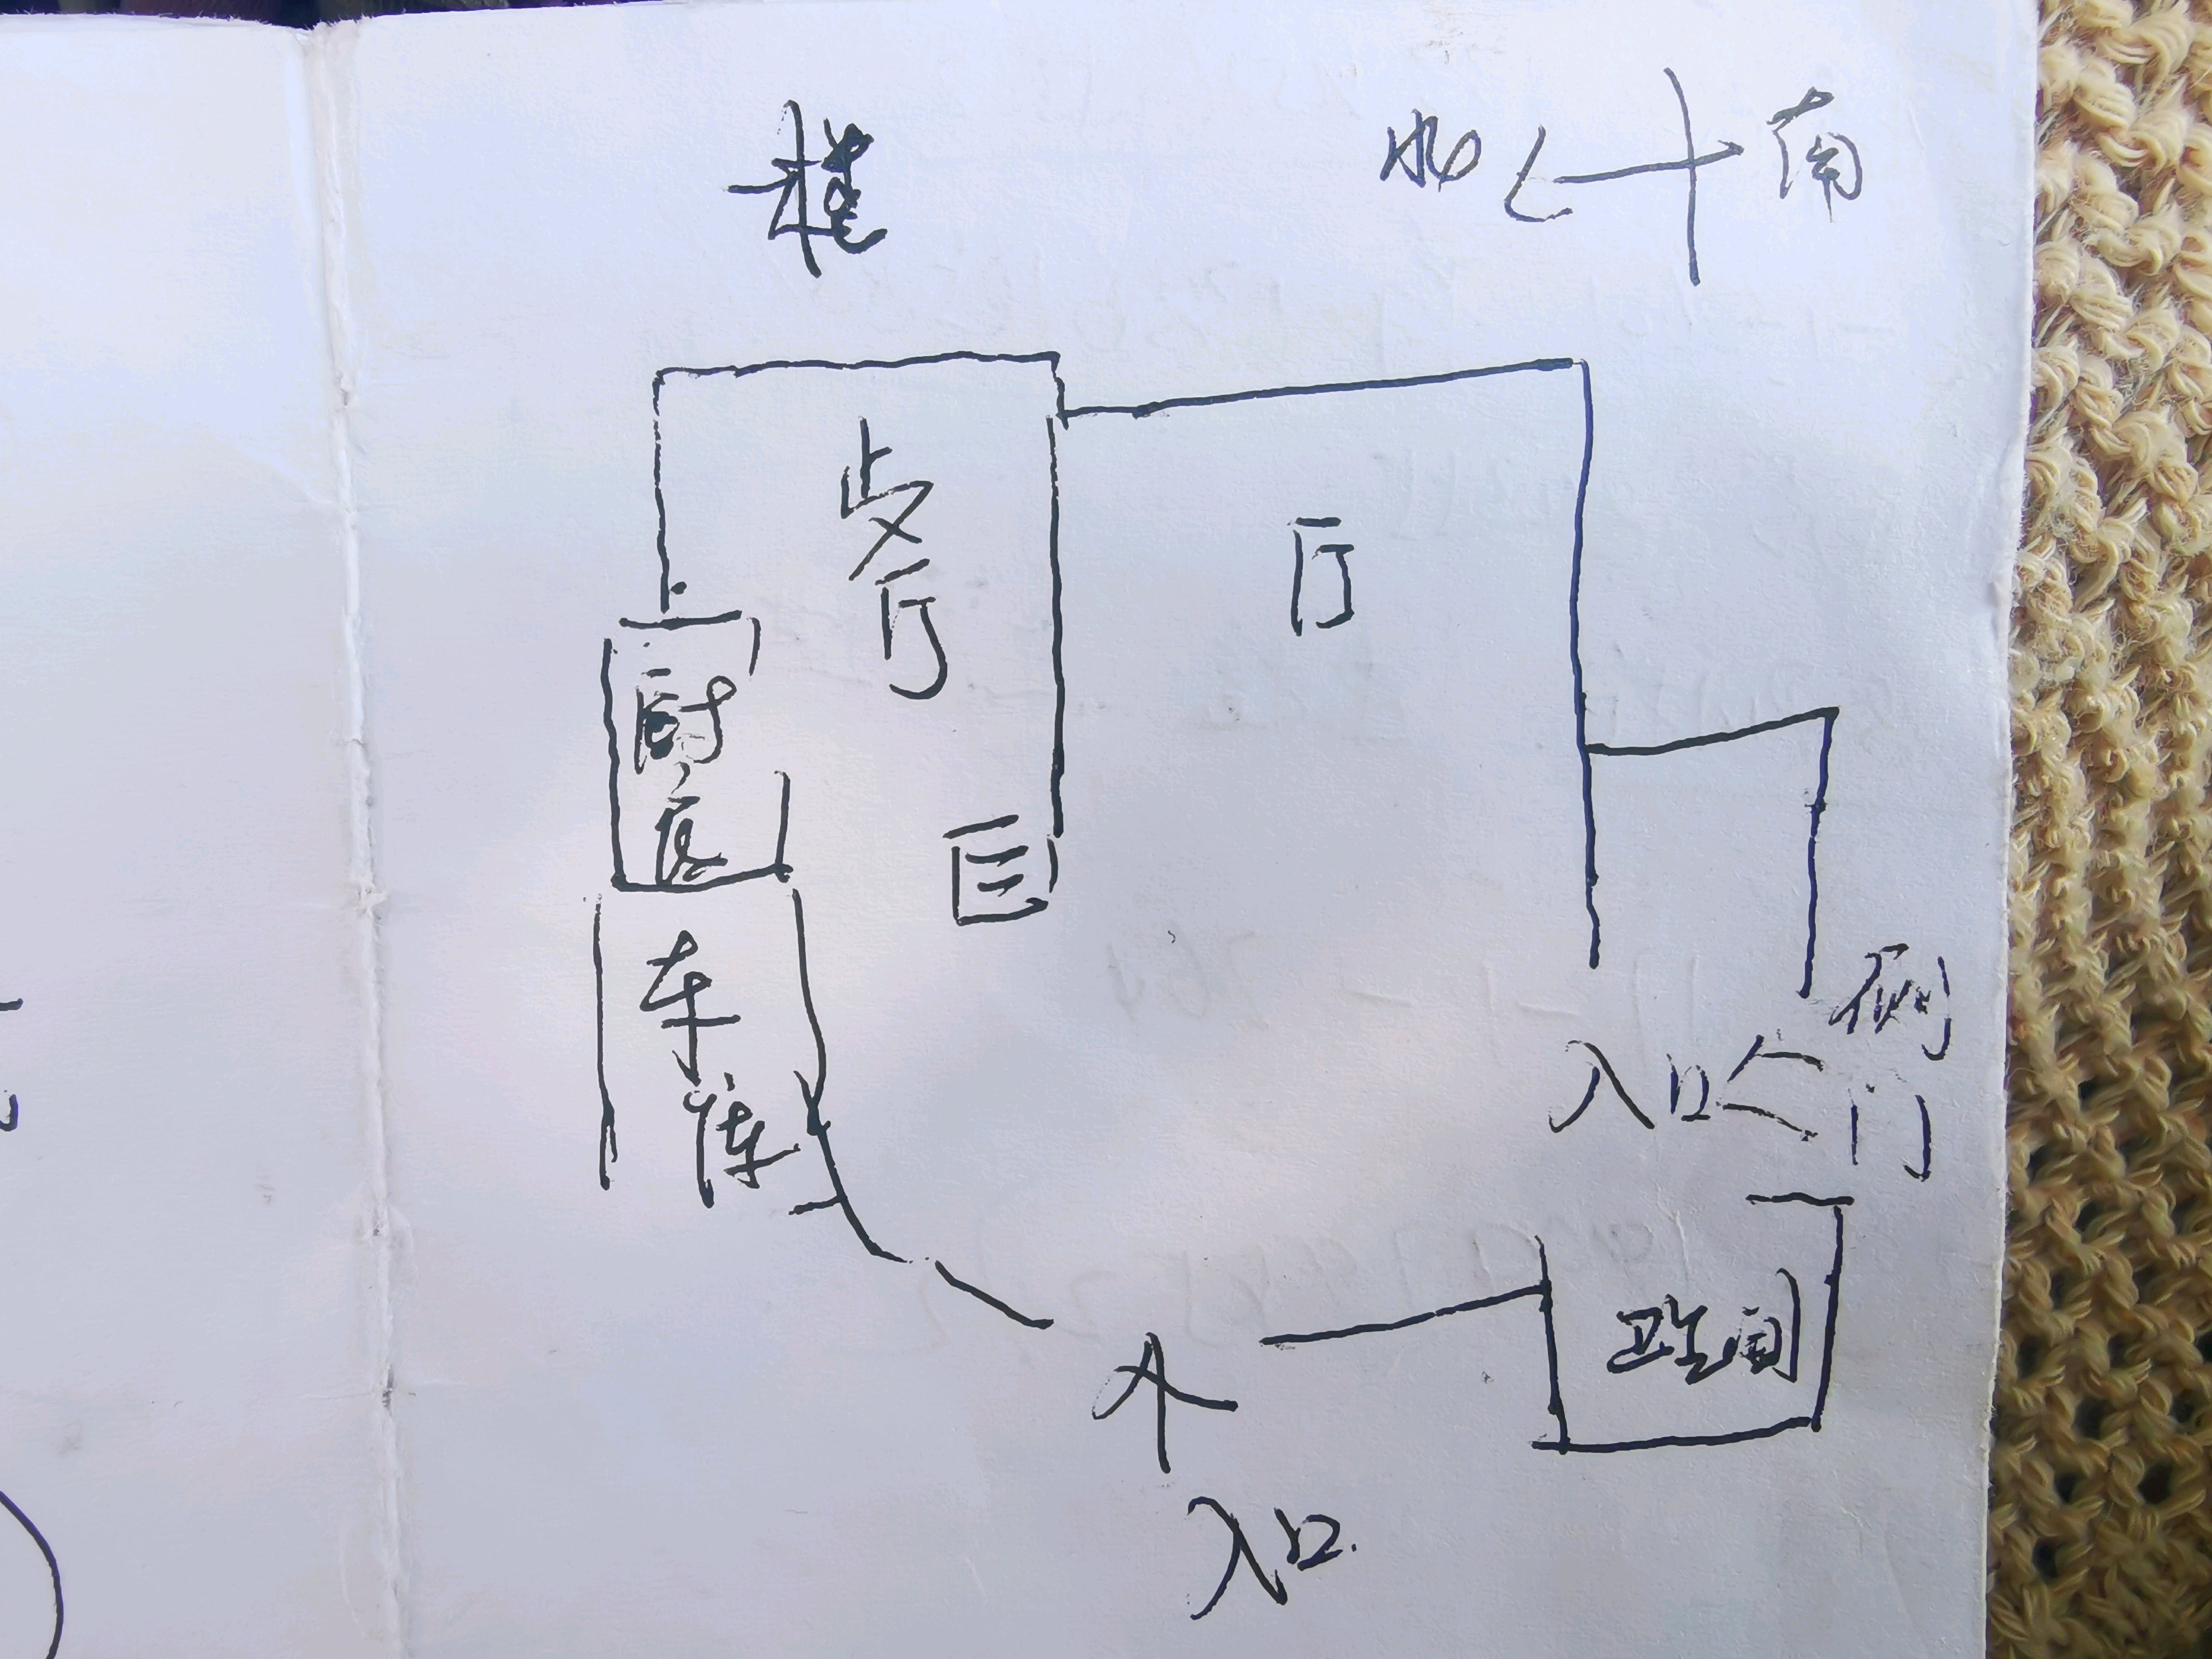 楼
北 南
厅
歺厅
厨房
车库
侧门
入口
卫生间
入口